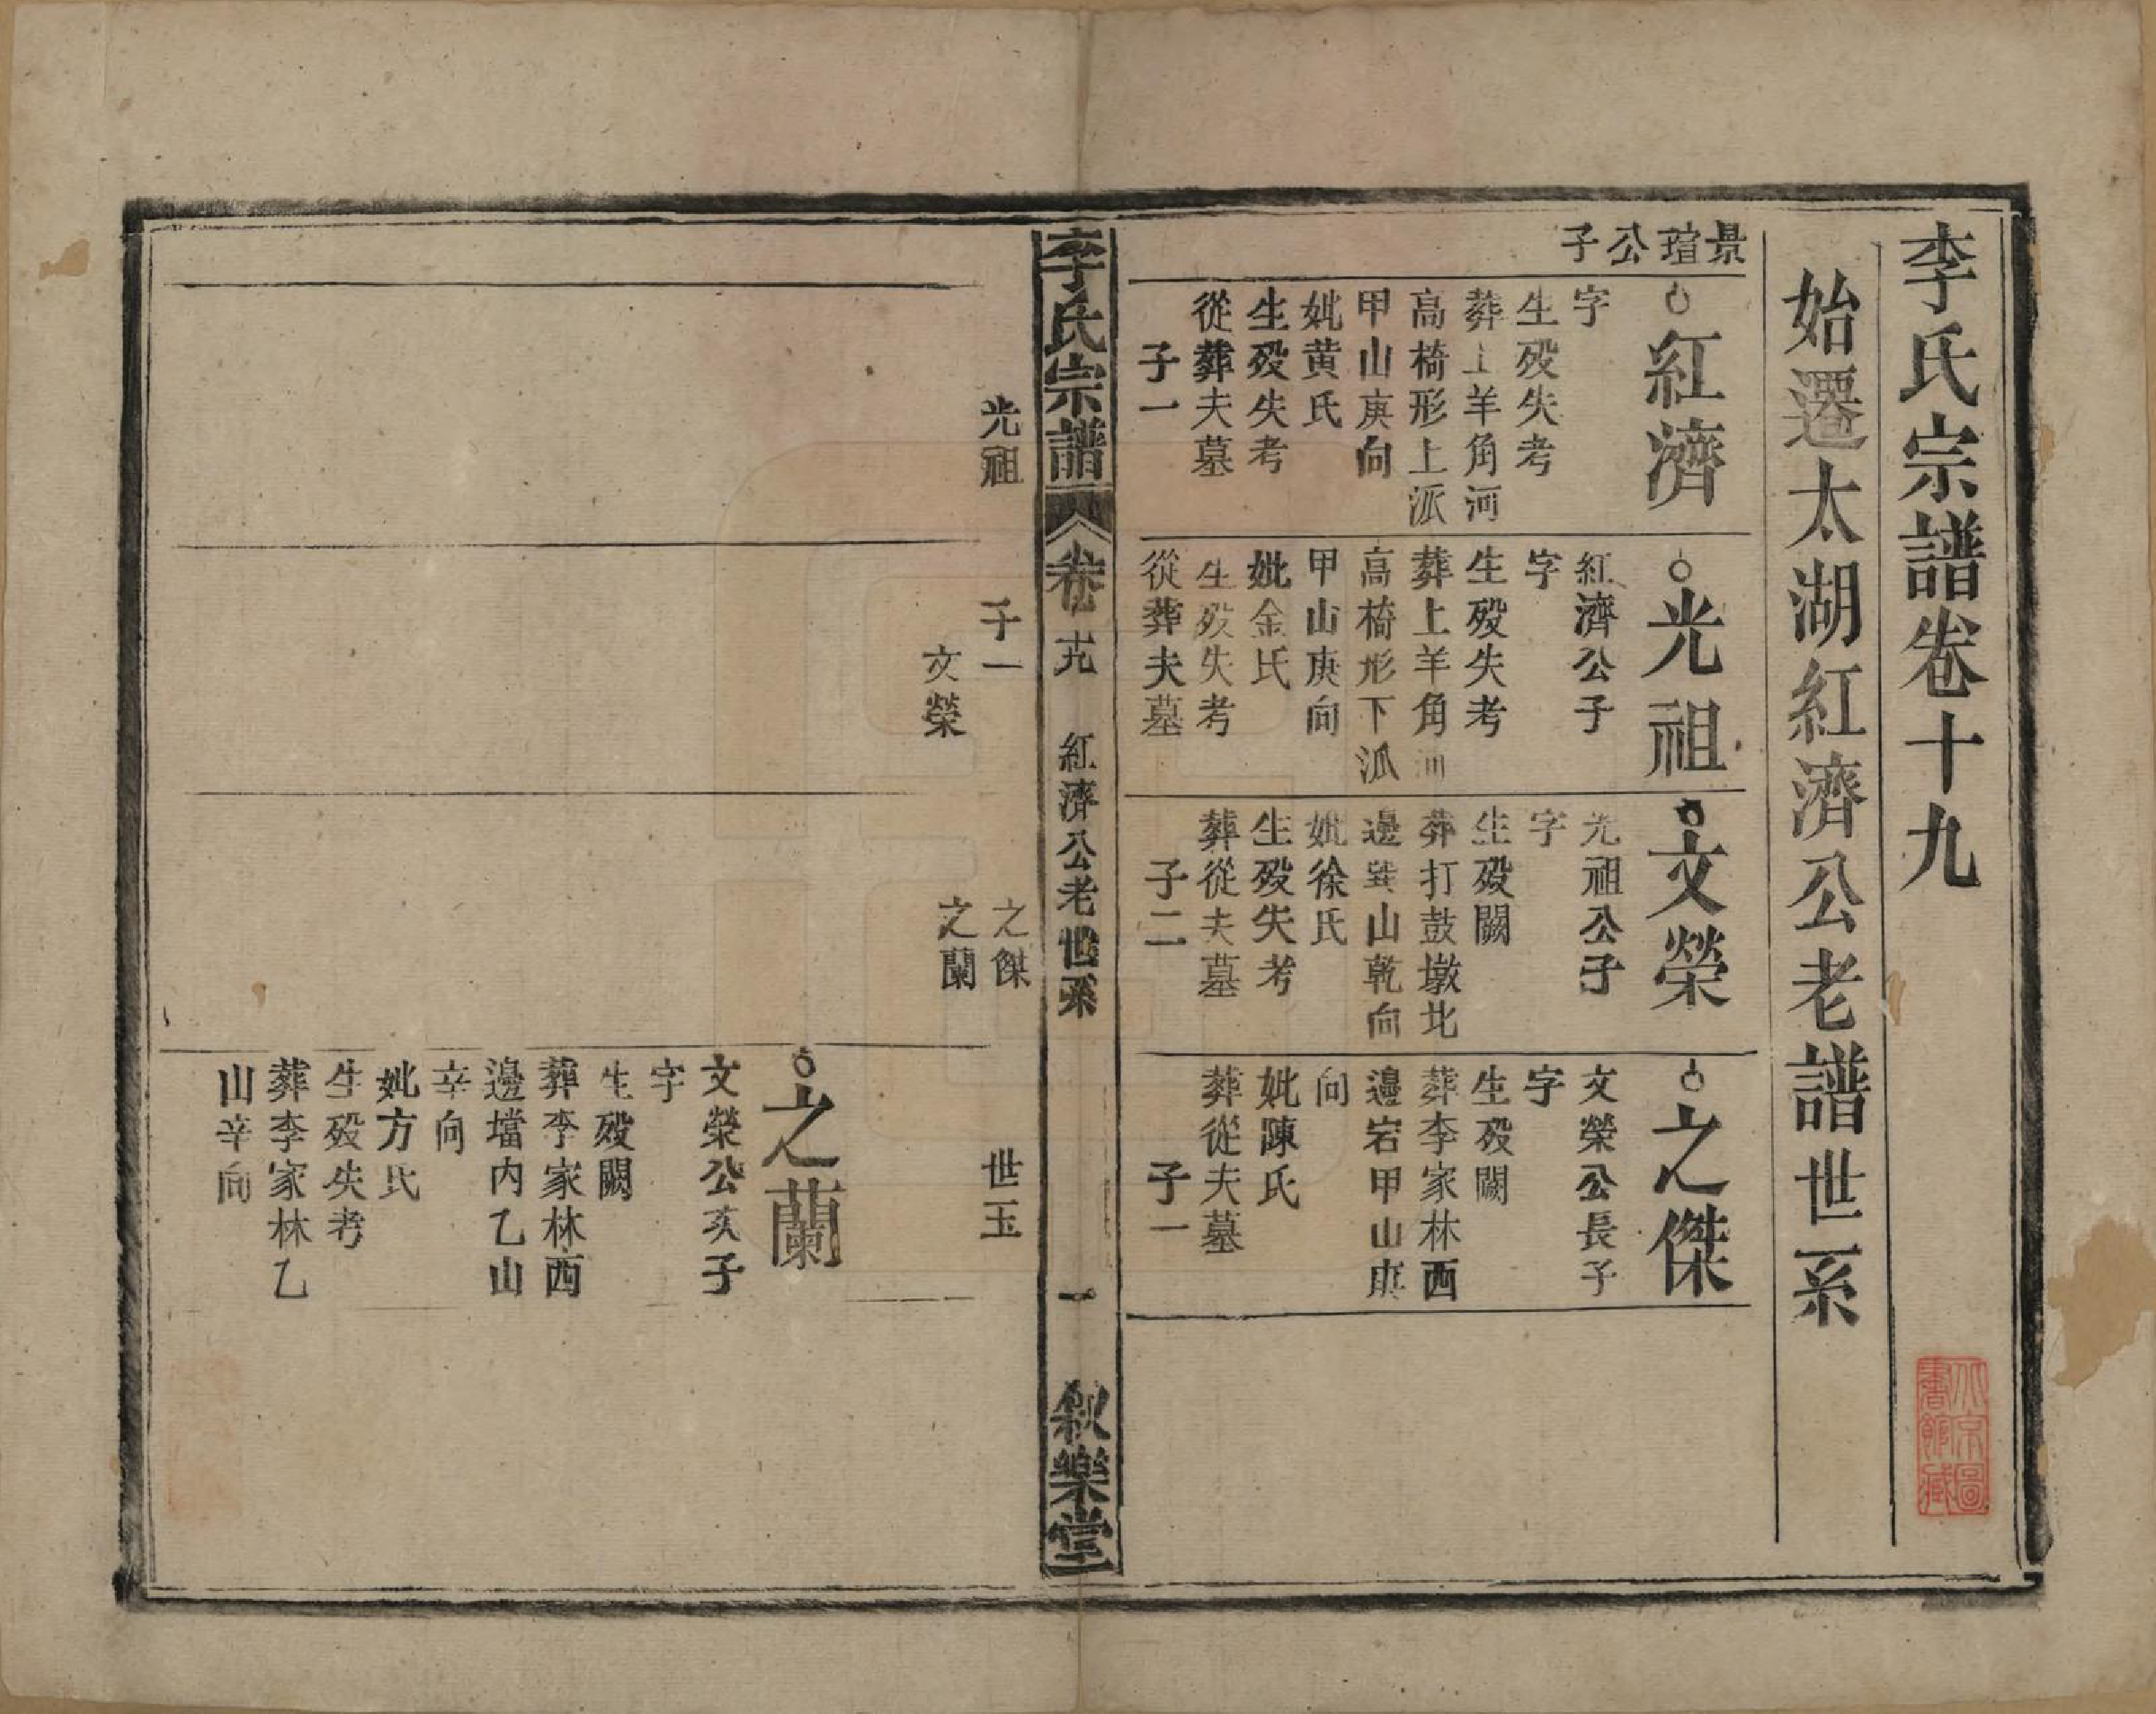 李氏宗譜卷十九
始遷太湖紅濟公老譜世系
景瑄公子
紅濟
字
生殁失考
葬上羊角河
高椅形上派
甲山庚向
妣黄氏
生殁失考
從葬夫墓
子一
光祖
紅濟公子
字
生殁失考
葬上羊角河
高椅形下派
甲山庚向
妣金氏
生殁失考
從葬夫墓
文榮
光祖公子
字
生殁闕
葬打鼓墩北
邊巽山乾向
妣徐氏
生殁失考
葬從夫墓
子二
之傑
文榮公長子
字
生殁闕
葬李家林西
邊宕甲山庚
向
妣陳氏
葬從夫墓
子一
李氏宗譜
卷十九
紅濟公老世系
一
敘樂堂
光祖
子一
文榮
之傑
之蘭
世玉
之蘭
文榮公次子
字
生殁闕
葬李家林西
邊壋内乙山
辛向
妣方氏
生殁失考
葬李家林乙
山辛向
北京圖
書館藏